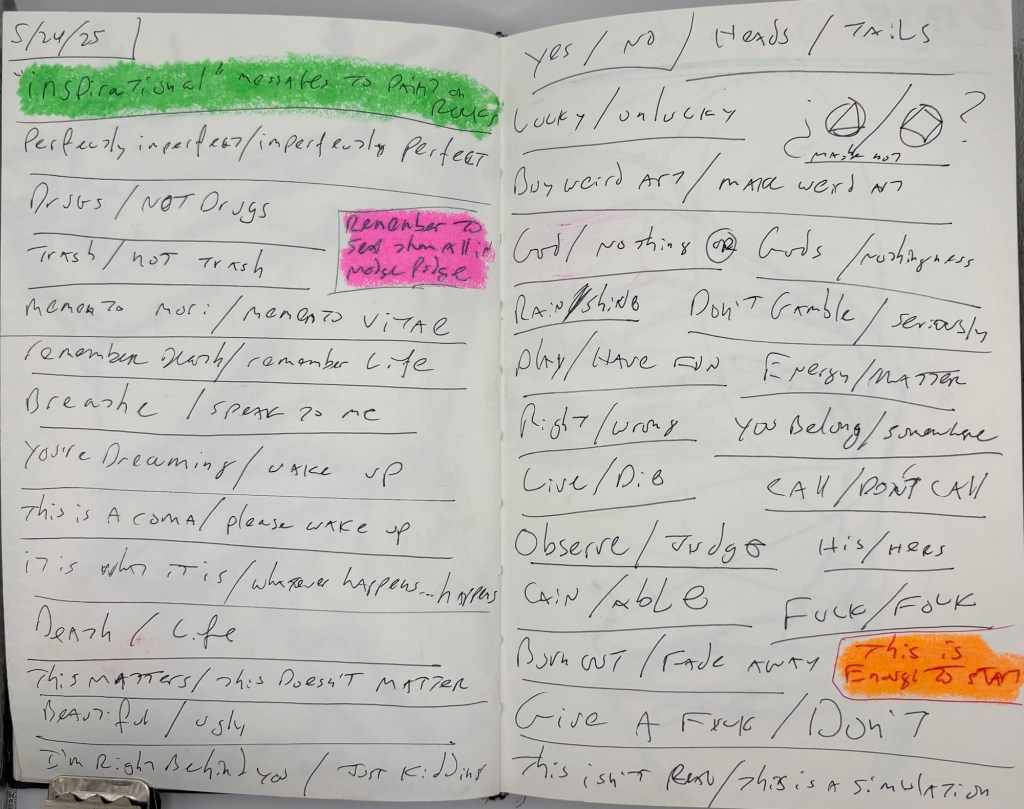 5/24/25
"inspirational" messages to paint on Rocks
Perfectly imperfect/imperfectly Perfect
Drugs / NOT Drugs
Trash / not Trash
Remember to
seal them All in
modge Podge
memento mori / memento vitae
remember death / remember Life
Breathe / speak to me
You're Dreaming / wake up
This is A coma / please wake up
it is what it is / whatever happens...happens
Death / Life
This MATTERS / this Doesn't MATTER
Beautiful / ugly
I'm Right Behind you / Just Kidding
Yes / No
Heads / TAiLS
Lucky / unlucky
¿ / ?
maybe not
Buy weird ART / make weird ART
God / nothing OR Gods / nothingness
RAiN / shine
Don't Gamble / seriously
Play / HAVE FUN
Energy / MATTER
Right / wrong
You Belong / somewhere
Live / Die
CAll / DON'T CAll
Observe / Judge
His / Hers
CAiN / AbLe
Fuck / FOLK
Burn OUT / Fade AWAY
This is
Enough To START
Give A Fuck / Don't
This isn't Real / This is A simulation